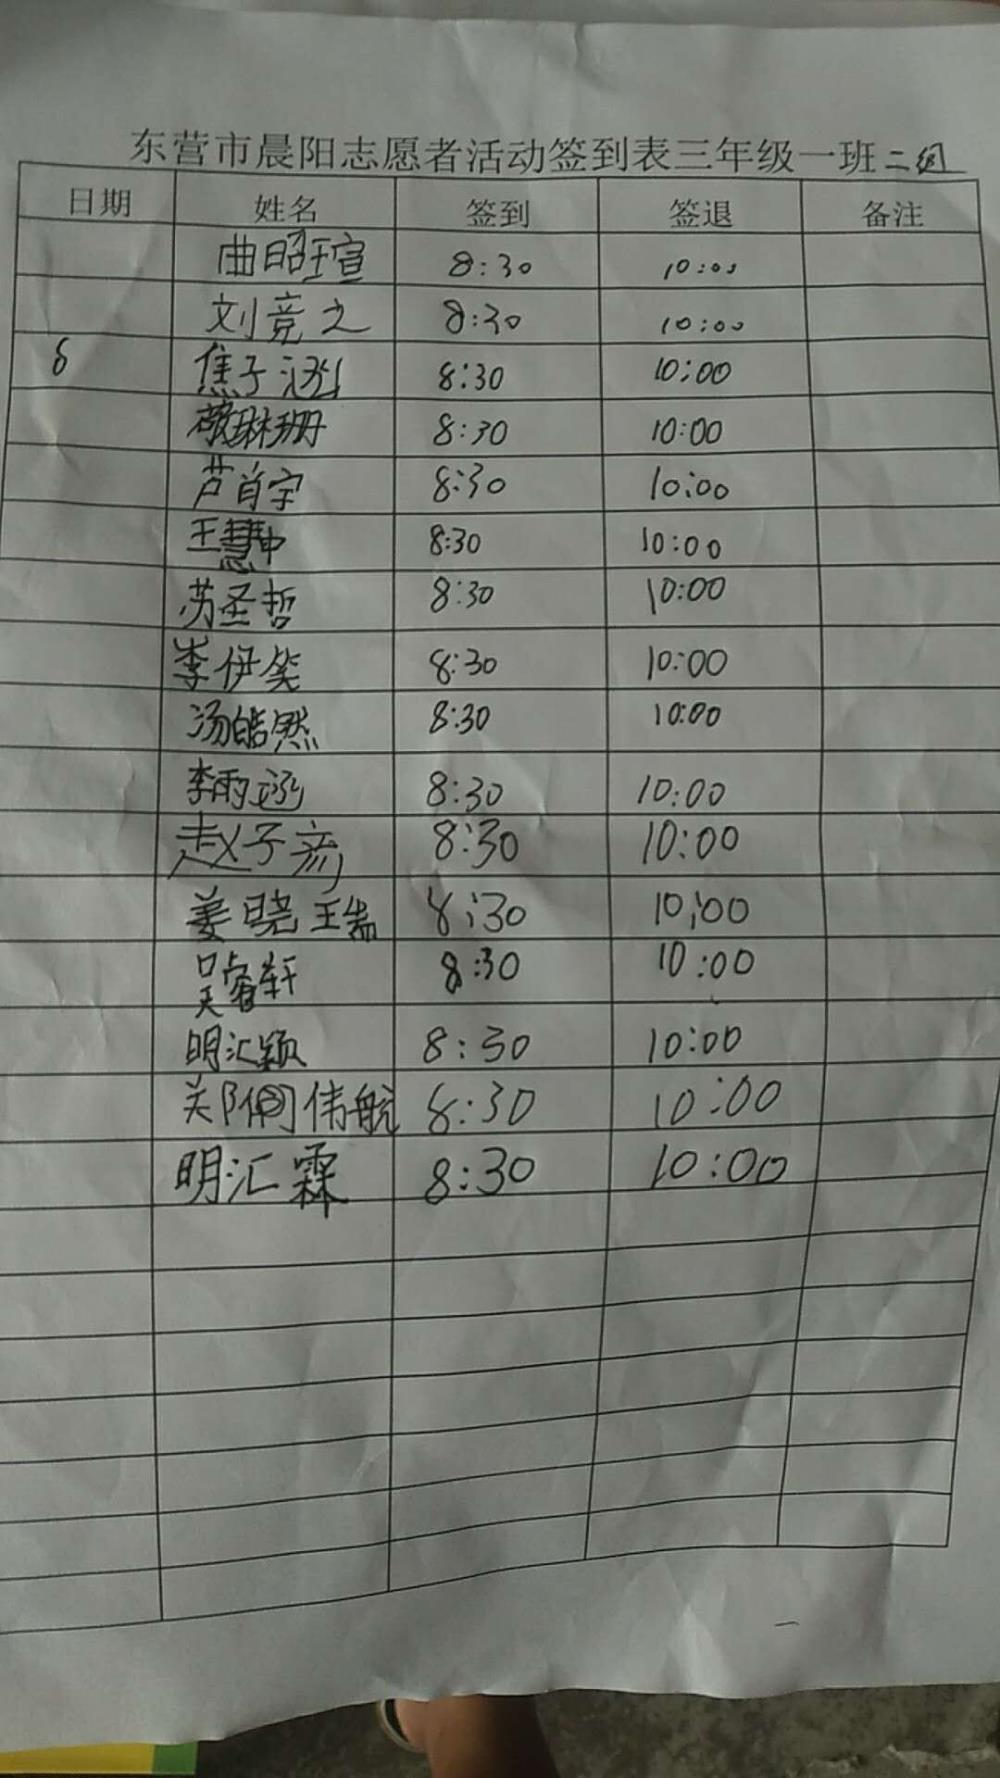 东营市晨阳志愿者活动签到表三年级一班二组
日期 姓名 签到 签退 备注
曲昭瑄 8:30 10:00
刘竞之 8:30 10:00
8 焦子涵 8:30 10:00
琳珊 8:30 10:00
芦首宇 8:30 10:00
王慧中 8:30 10:00
苏圣哲 8:30 10:00
李伊笑 8:30 10:00
汤皓然 8:30 10:00
李雨涵 8:30 10:00
赵子彦 8:30 10:00
姜晓瑞 8:30 10:00
吴睿轩 8:30 10:00
明汇颖 8:30 10:00
郑伟航 8:30 10:00
明汇霖 8:30 10:00